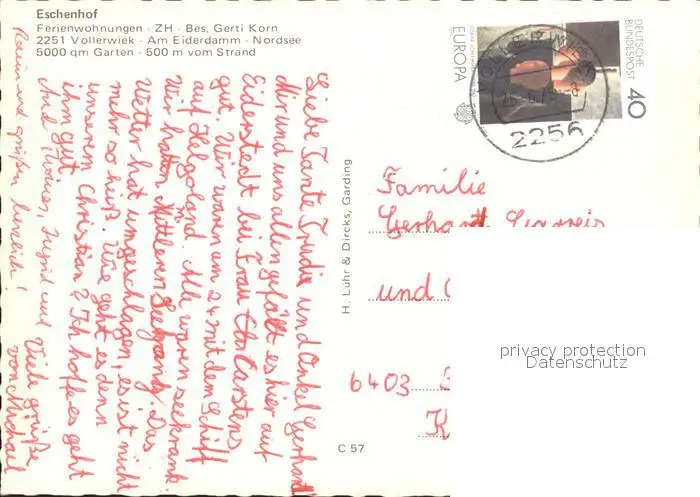 Eschenhof
Ferienwohnungen - ZH - Bes. Gerti Korn
2251 Vollerwiek - Am Eiderdamm - Nordsee
5000 qm Garten - 500 m vom Strand
Liebe Tante Trudie und Onkel Gerhard
Mir und uns allen gefällt es hier auf
Eiderstedt bei Frau Carstens
gut. Wir waren am 24 mit dem Schiff
auf Helgoland. Alle waren seekrank.
Wir hatten Mittleren Seegang. Das
Wetter hat umgeschlagen, es ist nicht
mehr so heiß. Wie geht es denn
unserem Christian? Ich hoffe es geht
ihm gut.
Viele grüße
von Michael
Auch Ingrid und
grüßen herzlich!
H. Lühr & Dircks, Garding
C 57
DEUTSCHE
BUNDESPOST
40
EUROPA
2256
Familie
Gerhardt
und
6403
K
privacy protection
Datenschutz